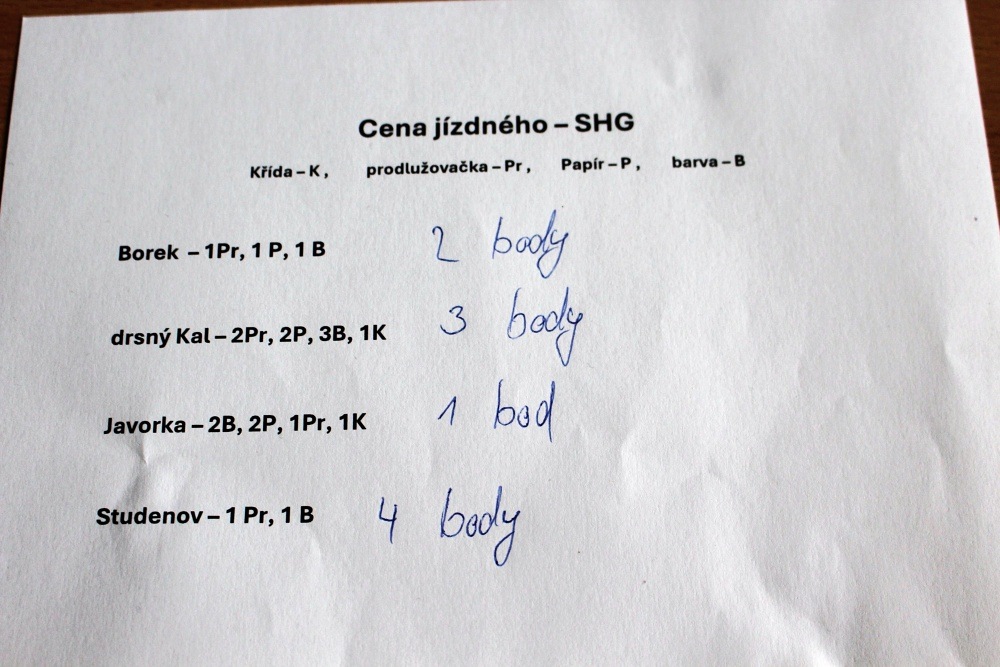 Cena jízdného – SHG
Křída – K , prodlužovačka – Pr , Papír – P , barva – B
Borek – 1Pr, 1 P, 1 B 2 body
drsný Kal – 2Pr, 2P, 3B, 1K 3 body
Javorka – 2B, 2P, 1Pr, 1K 1 bod
Studenov – 1 Pr, 1 B 4 body